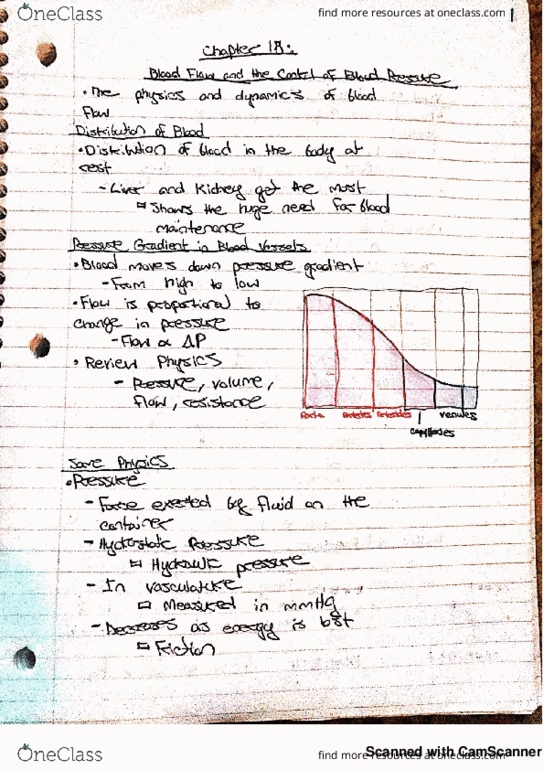 OneClass
find more resources at oneclass.com
Chapter 18:
Blood Flow and the Control of Blood Pressure
• The physics and dynamics of blood
flow
Distribution of Blood
• Distribution of blood in the body at
rest
- Liver and Kidney get the most
Shows the huge need for blood
maintenance
Pressure Gradient in Blood Vessels
• Blood moves down pressure gradient
- From high to low
• Flow is proportional to
change in pressure
- Flow α ΔP
• Review Physics
- Pressure, volume,
flow, resistance
Aorta Arteries Arterioles Venules
Capillaries
Some Physics
• Pressure
- Force exerted by fluid on the
container
- Hydrostatic Pressure
Hydraulic pressure
- In vasculature
Measured in mmHg
- Decreases as energy is lost
Friction
OneClass
find more resources at oneclass.com
Scanned with CamScanner